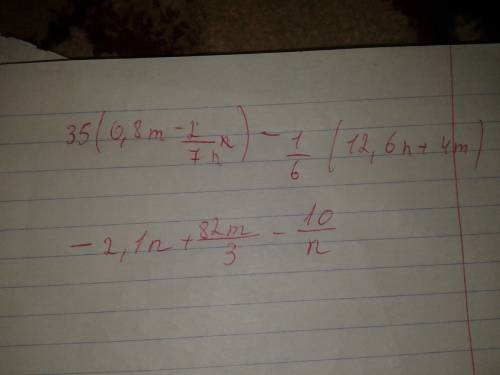 35(0,8m - 2/7n n) - 1/6 (12,6n + 4m)
- 2,1n + 82m/3 - 10/n